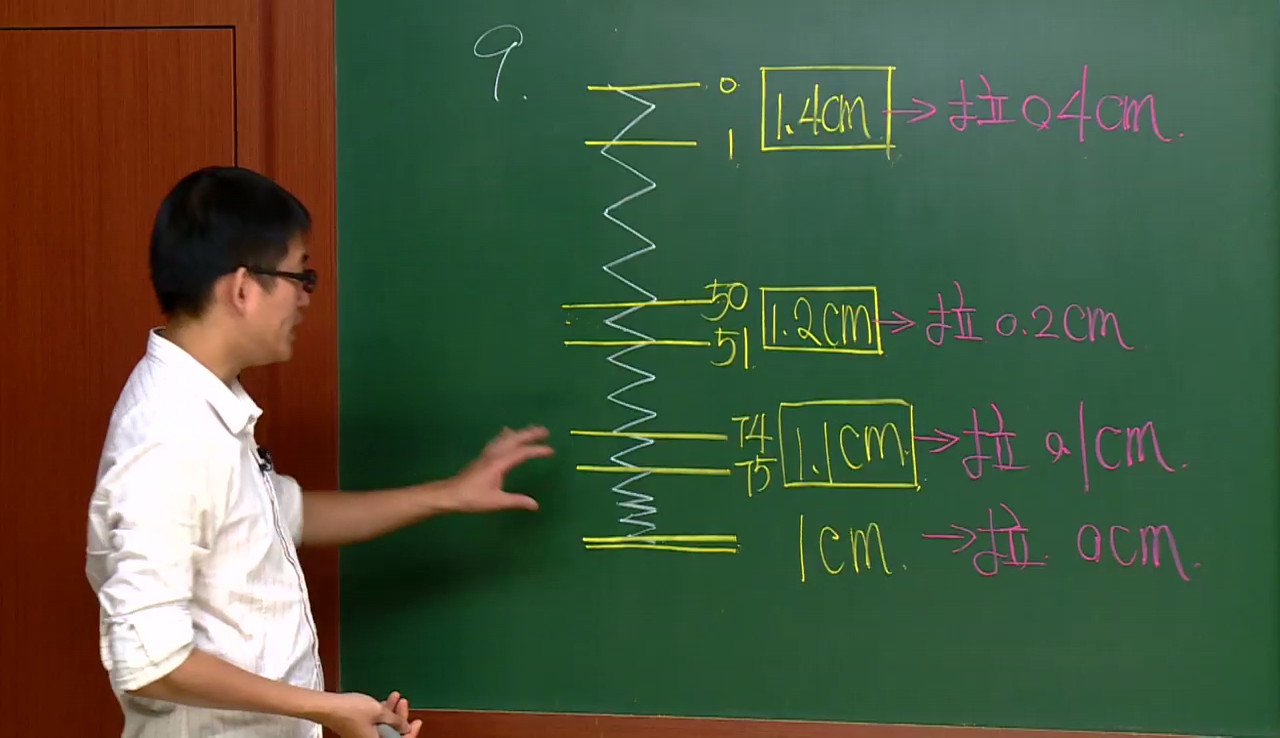 9.
0 1.4cm → 拉 0.4cm.
1
50 1.2cm → 拉 0.2cm
51
74 1.1cm → 拉 0.1cm.
75
1cm. → 拉 0cm.